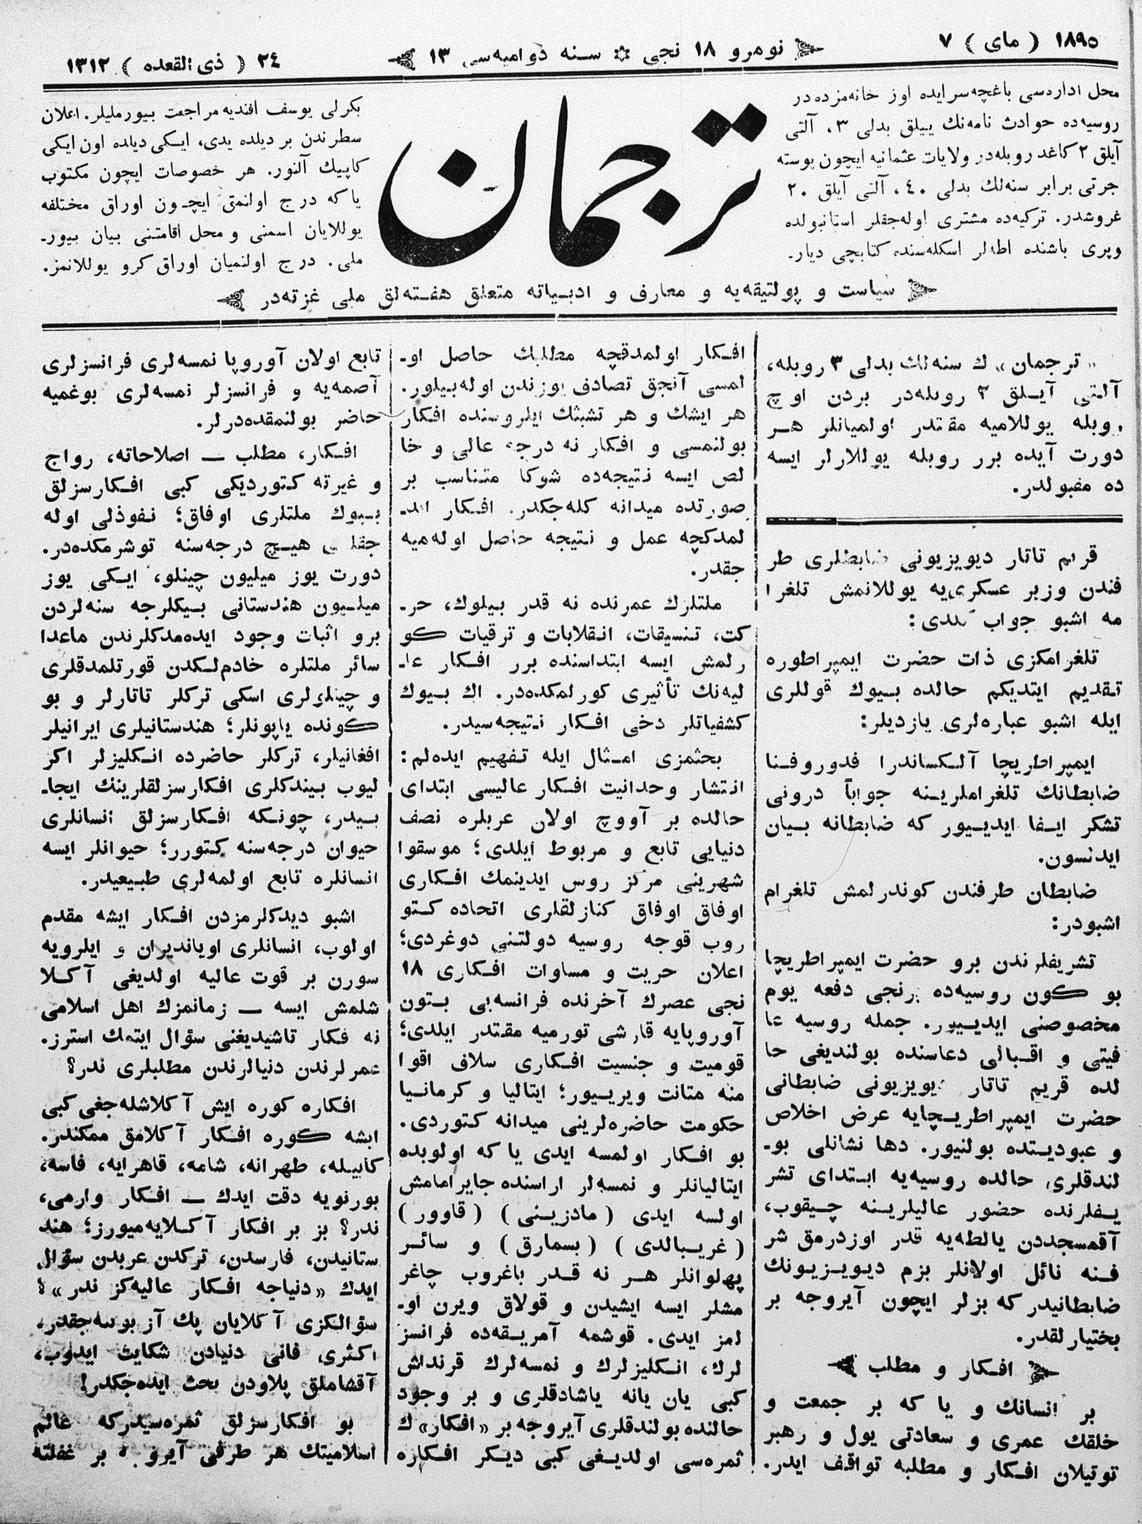 ١٨٩٥ ( مای ) ٧
نومرو ١٨ نجی ✲ سنه دوامیه‌سی ١٣
٢٤ ( ذی القعده ) ١٣١٢
محل اداره‌سی باغچه‌سرایده اوز خانه‌مزده‌در
روسیه‌ده حوادث نامه‌نك ییللق بدلی ٣، آلتی
آیلق ٢ کاغد روبله‌در ولایات عثمانیه ایچون بوسته
جرتی برابر سنه‌لك بدلی ٤٠، آلتی آیلق ٢٠
غروشدر. ترکیه‌ده مشتری اوله‌جقلر استانبولده
ویری باشنده اطه‌لر اسکله‌سنده کتابچی دیار.
ترجمان
بکرلی یوسف افندیه مراجعت بیورملیلر. اعلان
سطرندن بر دیلده یدی، ایکی دیلده اون ایکی
کاپیك آلنور. هر خصوصات ایچون مکتوب
یا که درج اولنمق ایچون اوراق مختلفه
یوللایان اسمنی و محل اقامتنی بیان بیور‌ـ
ملی. درج اولنمیان اوراق کرو یوللانمز.
سیاست و پولتیقه‌یه و معارف و ادبیاته متعلق هفته‌لق ملی غزته‌در
«ترجمان» ك سنه‌لك بدلی ٣ روبله،
آلتی آیلق ٢ روبله‌در بردن اوچ
روبله یوللامیه مقتدر اولمیانلر هر
دورت آیده برر روبله یوللارلر ایسه
ده مقبولدر.
قریم تاتار دیویزیونی ضابطلری طر
فندن وزیر عسکری‌یه یوللانمش تلغرا
مه اشبو جواب کلدی:
تلغرامکزی ذات حضرت ایمپراطوره
تقدیم ایتدیکم حالده بیوك قوللری
ایله اشبو عباره‌لری یازدیلر:
ایمپراطریچا آلکساندرا فدوروفنا
ضابطانك تلغراملرینه جواباً درونی
تشکر ایفا ایدییور که ضابطانه بیان
ایدنسون.
ضابطان طرفندن کوندرلمش تلغرام
اشبودر:
تشریفلرندن برو حضرت ایمپراطریچا
بو کون روسیه‌ده برنجی دفعه یوم
مخصوصنی ایدییور. جمله روسیه عا
فیتی و اقبالی دعاسنده بولندیغی حا
لده قریم تاتار دیویزیونی ضابطانی
حضرت ایمپراطریچایه عرض اخلاص
و عبودیتده بولنیور. دها نشانلی بو‌ـ
لندقلری حالده روسیه‌یه ابتدای تشر
یفلرنده حضور عالیلرینه چیقوب،
آقمسجددن یالطه‌یه قدر اوزدرمق شر
فنه نائل اولانلر بزم دیویزیونك
ضابطانیدر که بزلر ایچون آیروجه بر
بختیارلقدر.
افکار و مطلب
بر انسانك و یا که بر جمعت و
خلقك عمری و سعادتی یول و رهبر
توتیلان افکار و مطلبه تواقف ایدر.
افکار اولمدقچه مطلبك حاصل او‌ـ
لمسی آنجق تصادف یوزندن اوله‌بیلور.
هر ایشك و هر تشبثك ایلروسنده افکار
بولنمسی و افکار نه درجه عالی و خا
لص ایسه نتیجه‌ده شوکا متناسب بر
صورتده میدانه کله‌جکدر. افکار اند‌ـ
لمدکچه عمل و نتیجه حاصل اوله‌میه
جقدر.
ملتلرك عمرنده نه قدر بیلوك، حر‌ـ
کت، تنسیقات، انقلابات و ترقیات کو
رلمش ایسه ابتداسنده برر افکار عا‌ـ
لیه‌نك تأثیری کورلمکده‌در. اك بیوك
کشفیاتلر دخی افکار نتیجه‌سیدر.
بحثمزی امثال ایله تفهیم ایده‌لم:
انتشار وحدانیت افکار عالیسی ابتدای
حالده بر آووچ اولان عربلره نصف
دنیایی تابع و مربوط ایلدی؛ موسقوا
شهرینی مرکز روس ایدینمك افکاری
اوفاق اوفاق کنازلقلری اتحاده کتو
روب قوجه روسیه دولتنی دوغردی؛
اعلان حریت و مساوات افکاری ١٨
نجی عصرك آخرنده فرانسه‌یی بتون
آوروپایه قارشی تورمیه مقتدر ایلدی؛
قومیت و جنسیت افکاری سلاف اقوا
منه متانت ویرییور؛ ایتالیا و کرمانیا
حکومت حاضره‌لرینی میدانه کتوردی.
بو افکار اولمسه ایدی یا که اولوبده
ایتالیانلر و نمسه‌لر اراسنده جایرامامش
اولسه ایدی (مادزینی) (قاوور)
(غریبالدی) (بسمارق) و سائر
پهلوانلر هر نه قدر باغروب چاغر
مشلر ایسه ایشیدن و قولاق ویرن او‌ـ
لمز ایدی. قوشمه آمریقه‌ده فرانسز
لرك، انکلیزلرك و نمسه‌لرك قرنداش
کبی یان یانه یاشادقلری و بر وجود
حالنده بولندقلری آیروجه بر «افکار» ك
ثمره‌سی اولدیغی کبی دیکر افکاره
تابع اولان آوروپا نمسه‌لری فرانسزلری
آصمه‌یه و فرانسزلر نمسه‌لری بوغمیه
حاضر بولنمقده‌درلر.
افکار، مطلب — اصلاحاته، رواج
و غیرته کتوردیکی کبی افکارسزلق
بیوك ملتلری اوفاق؛ نفوذلی اوله
جقلری هیچ درجه‌سنه توشرمکده‌در.
دورت یوز میلیون چینلو، ایکی یوز
میلیون هندستانی بیکلرجه سنه‌لردن
برو اثبات وجود ایده‌مدکلرندن ماعدا
سائر ملتلره خادم‌لکدن قورتلمدقلری
و چینلولری اسکی ترکلر تاتارلر و بو
کونده یاپونلر؛ هندستانیلری ایرانیلر
افغانیلر، ترکلر حاضرده انکلیزلر اکر
لیوب بیندکلری افکارسزلقلرینك ایجا‌ـ
بیدر، چونکه افکارسزلق انسانلری
حیوان درجه‌سنه کتورر؛ حیوانلر ایسه
انسانلره تابع اولمه‌لری طبیعیدر.
اشبو دیدکلرمزدن افکار ایشه مقدم
اولوب، انسانلری اویاندیران و ایلرویه
سورن بر قوت عالیه اولدیغی آکلا
شلمش ایسه — زمانمزك اهل اسلامی
نه فکار تاشیدیغنی سؤال ایتمك استرز.
عمرلرندن دنیالرندن مطلبلری ندر؟
افکاره کوره ایش آکلاشله‌جغی کبی
ایشه کوره افکار آکلامق ممکندر.
کابیله، طهرانه، شامه، قاهرایه، فاسه،
بورنویه دقت ایدك — افکار وارمی،
ندر؟ بز بر افکار آکلایه‌میورز؛ هند
ستانیدن، فارسدن، ترکدن عربدن سؤال
ایدك «دنیاجه افکار عالیه‌کز ندر»؟
سؤالکزی آکلایان پك آز بوله‌جقدر،
اکثری فانی دنیادن شکایت ایدوب،
آقشاملق پلاودن بحث ایده‌جکدر!
بو افکارسزلق ثمره‌سیدرکه عالم
اسلامیتك هر طرفی آیروجه بر غفلته